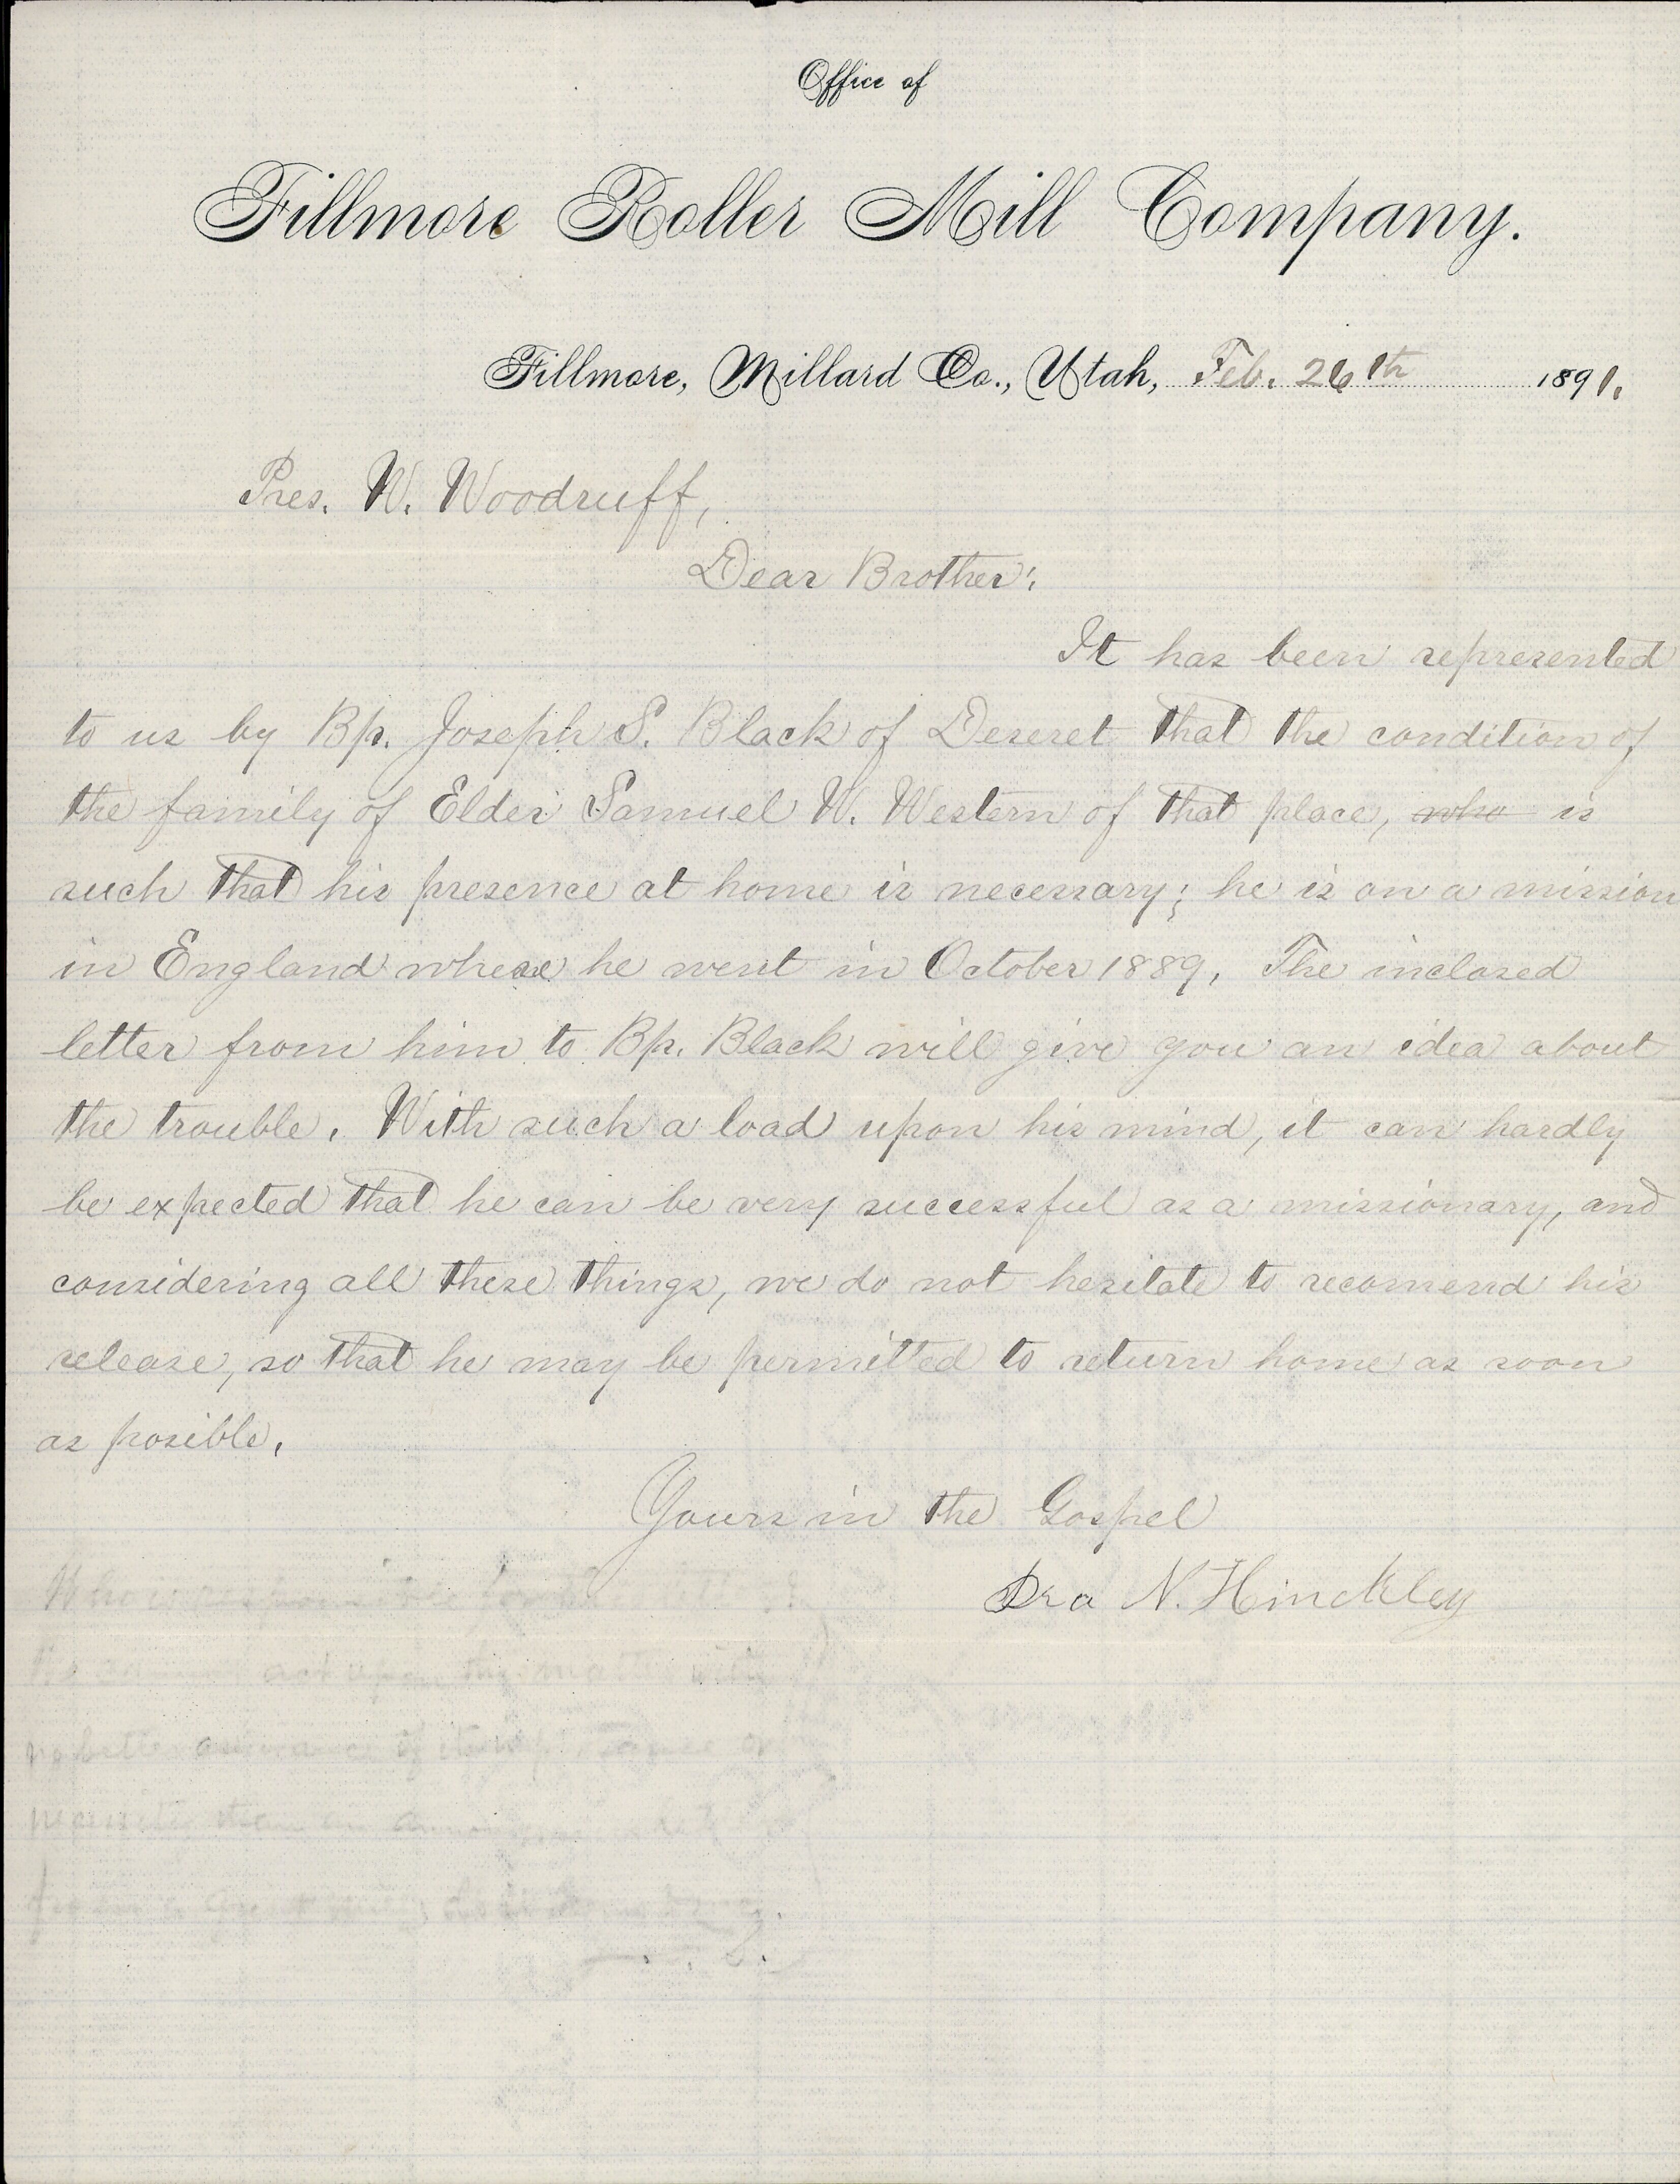 Office of
Fillmore Roller Mill Company.
Fillmore, Millard Co., Utah, Feb. 26th 1891.
Pres. W. Woodruff,
Dear Brother:
It has been represented
to us by Bp. Joseph S. Black of Deseret that the condition of
the family of Elder Samuel W. Western of that place, who is
such that his presence at home is necessary; he is on a mission
in England where he went in October 1889. The inclosed
letter from him to Bp. Black will give you an idea about
the trouble. With such a load upon his mind, it can hardly
be expected that he can be very successful as a missionary, and
considering all these things, we do not hesitate to recomend his
release, so that he may be permitted to return home as soon
as posible.
Yours in the Gospel
Ira N. Hinckley
act upon the matter with
no better
than an
from a